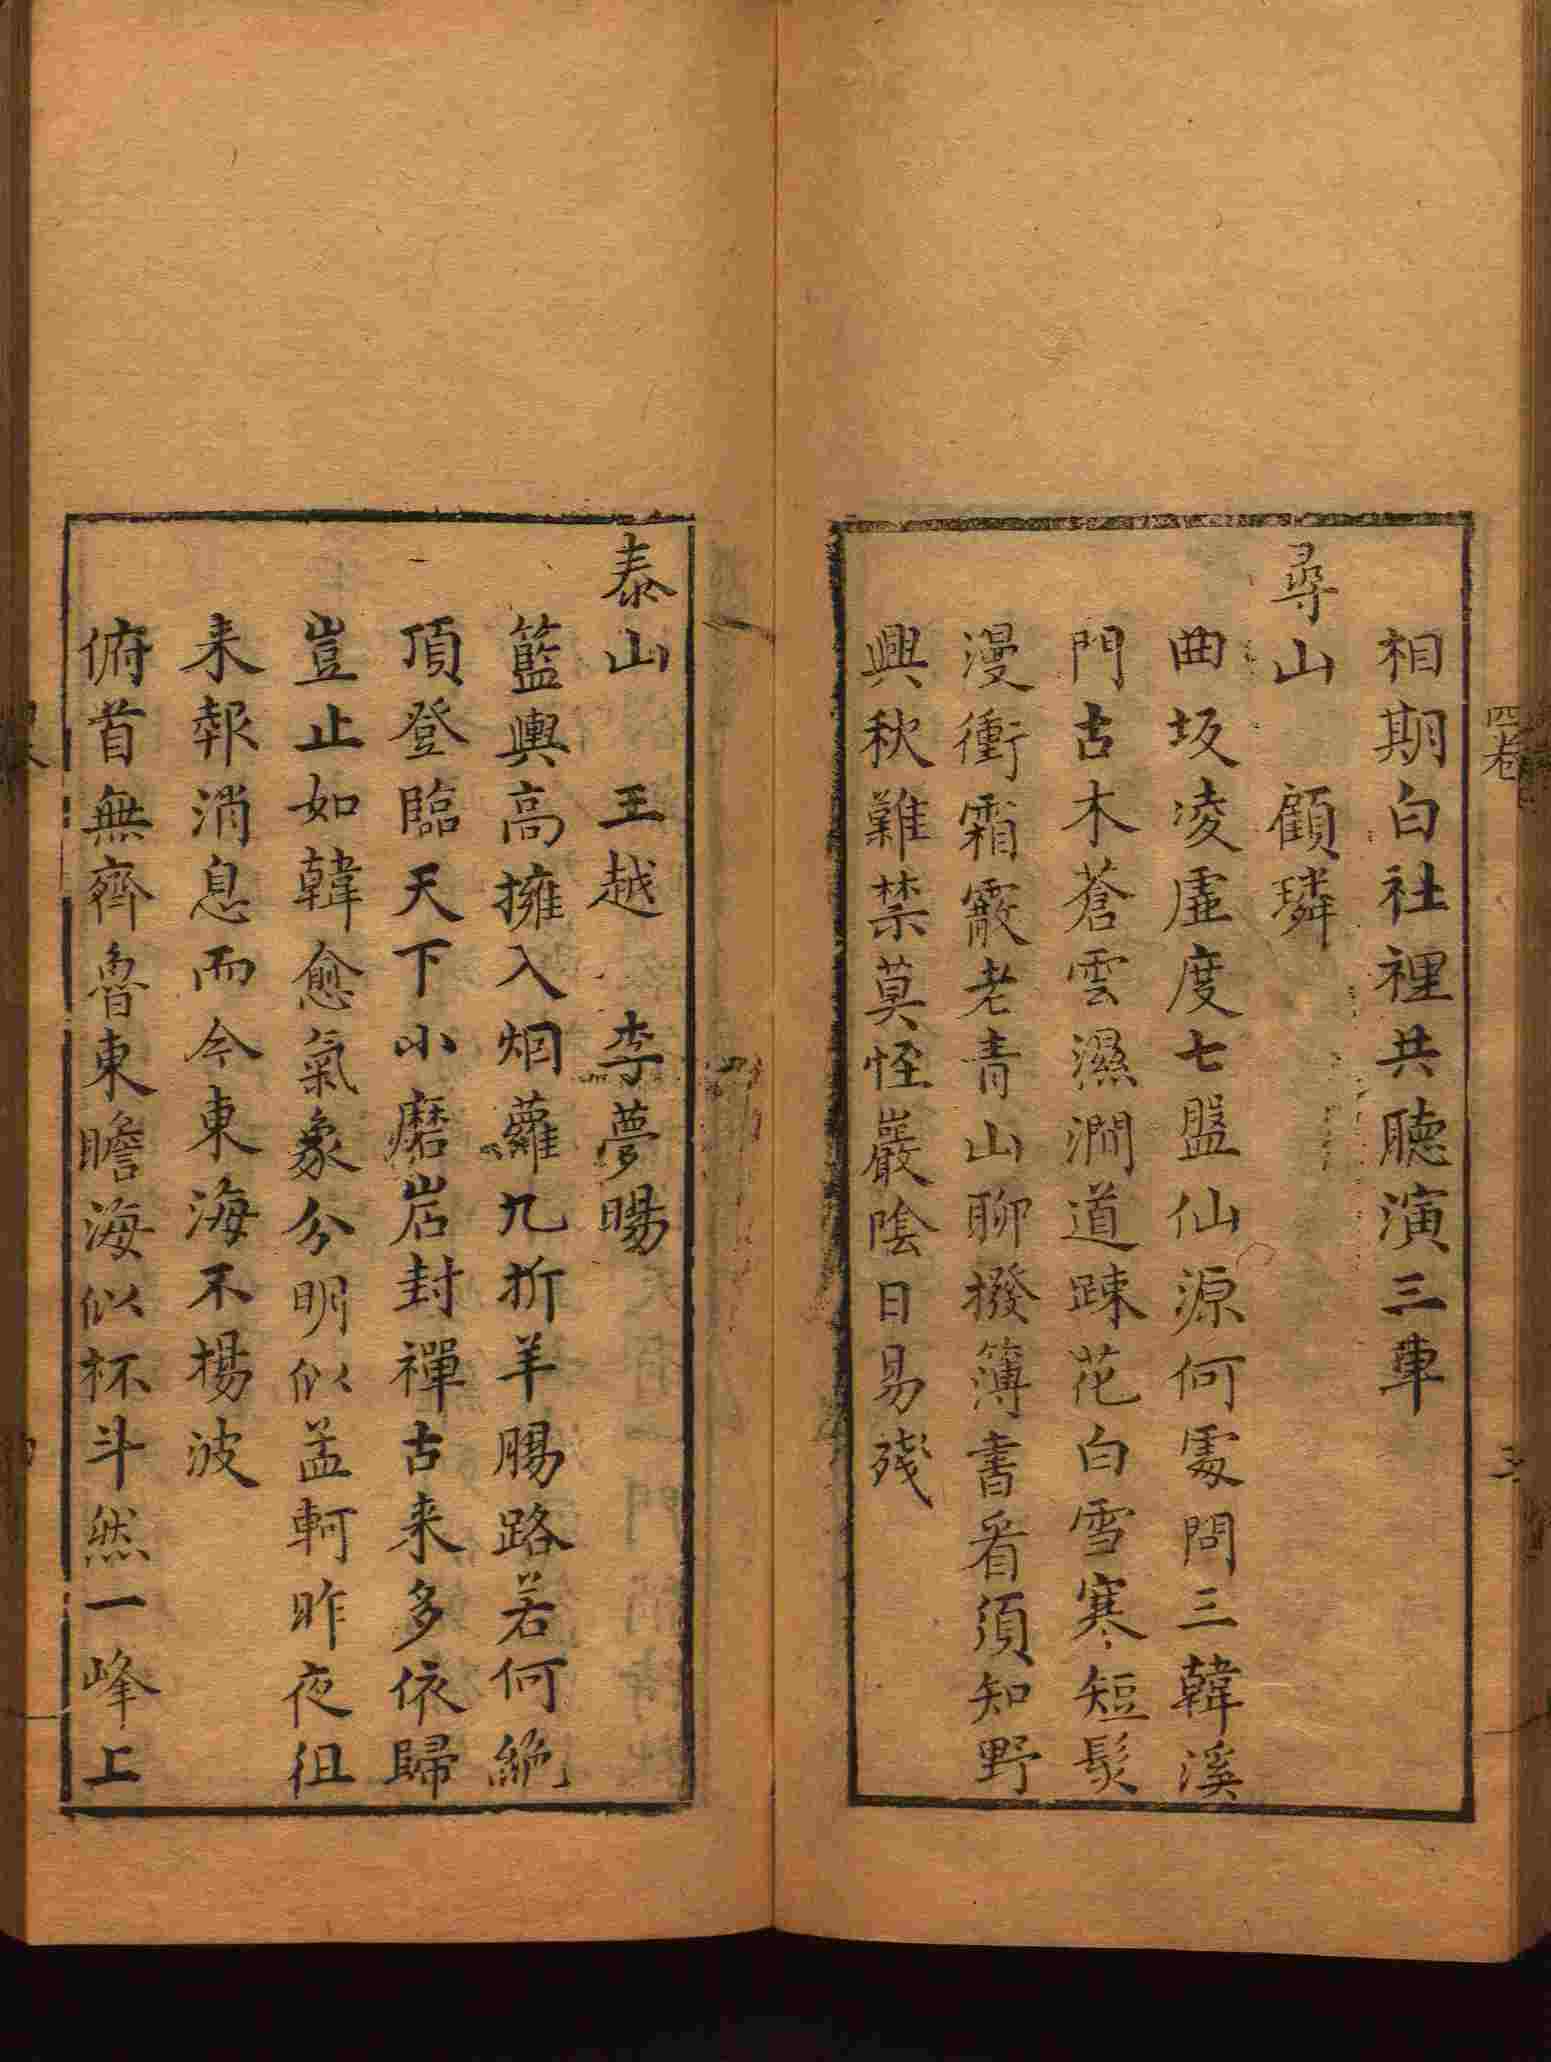 相期白社裡共聽演三車
尋山 顧璘
曲坂凌虛度七盤仙源何處問三韓溪
門古木蒼雲濕澗道踈花白雪寒短髮
漫衝霜霰老青山聊撥簿書看須知野
興秋難禁莫怪巖陰日易殘
泰山 王越 李夢暘
籃輿高擁入烟蘿九折羊腸路若何絶
頂登臨天下小磨岩封禪古来多依歸
豈止如韓愈氣象分明似孟軻昨夜徂
来報消息而今東海不揚波
俯首無齊魯東瞻海似杯斗然一峰上
四卷